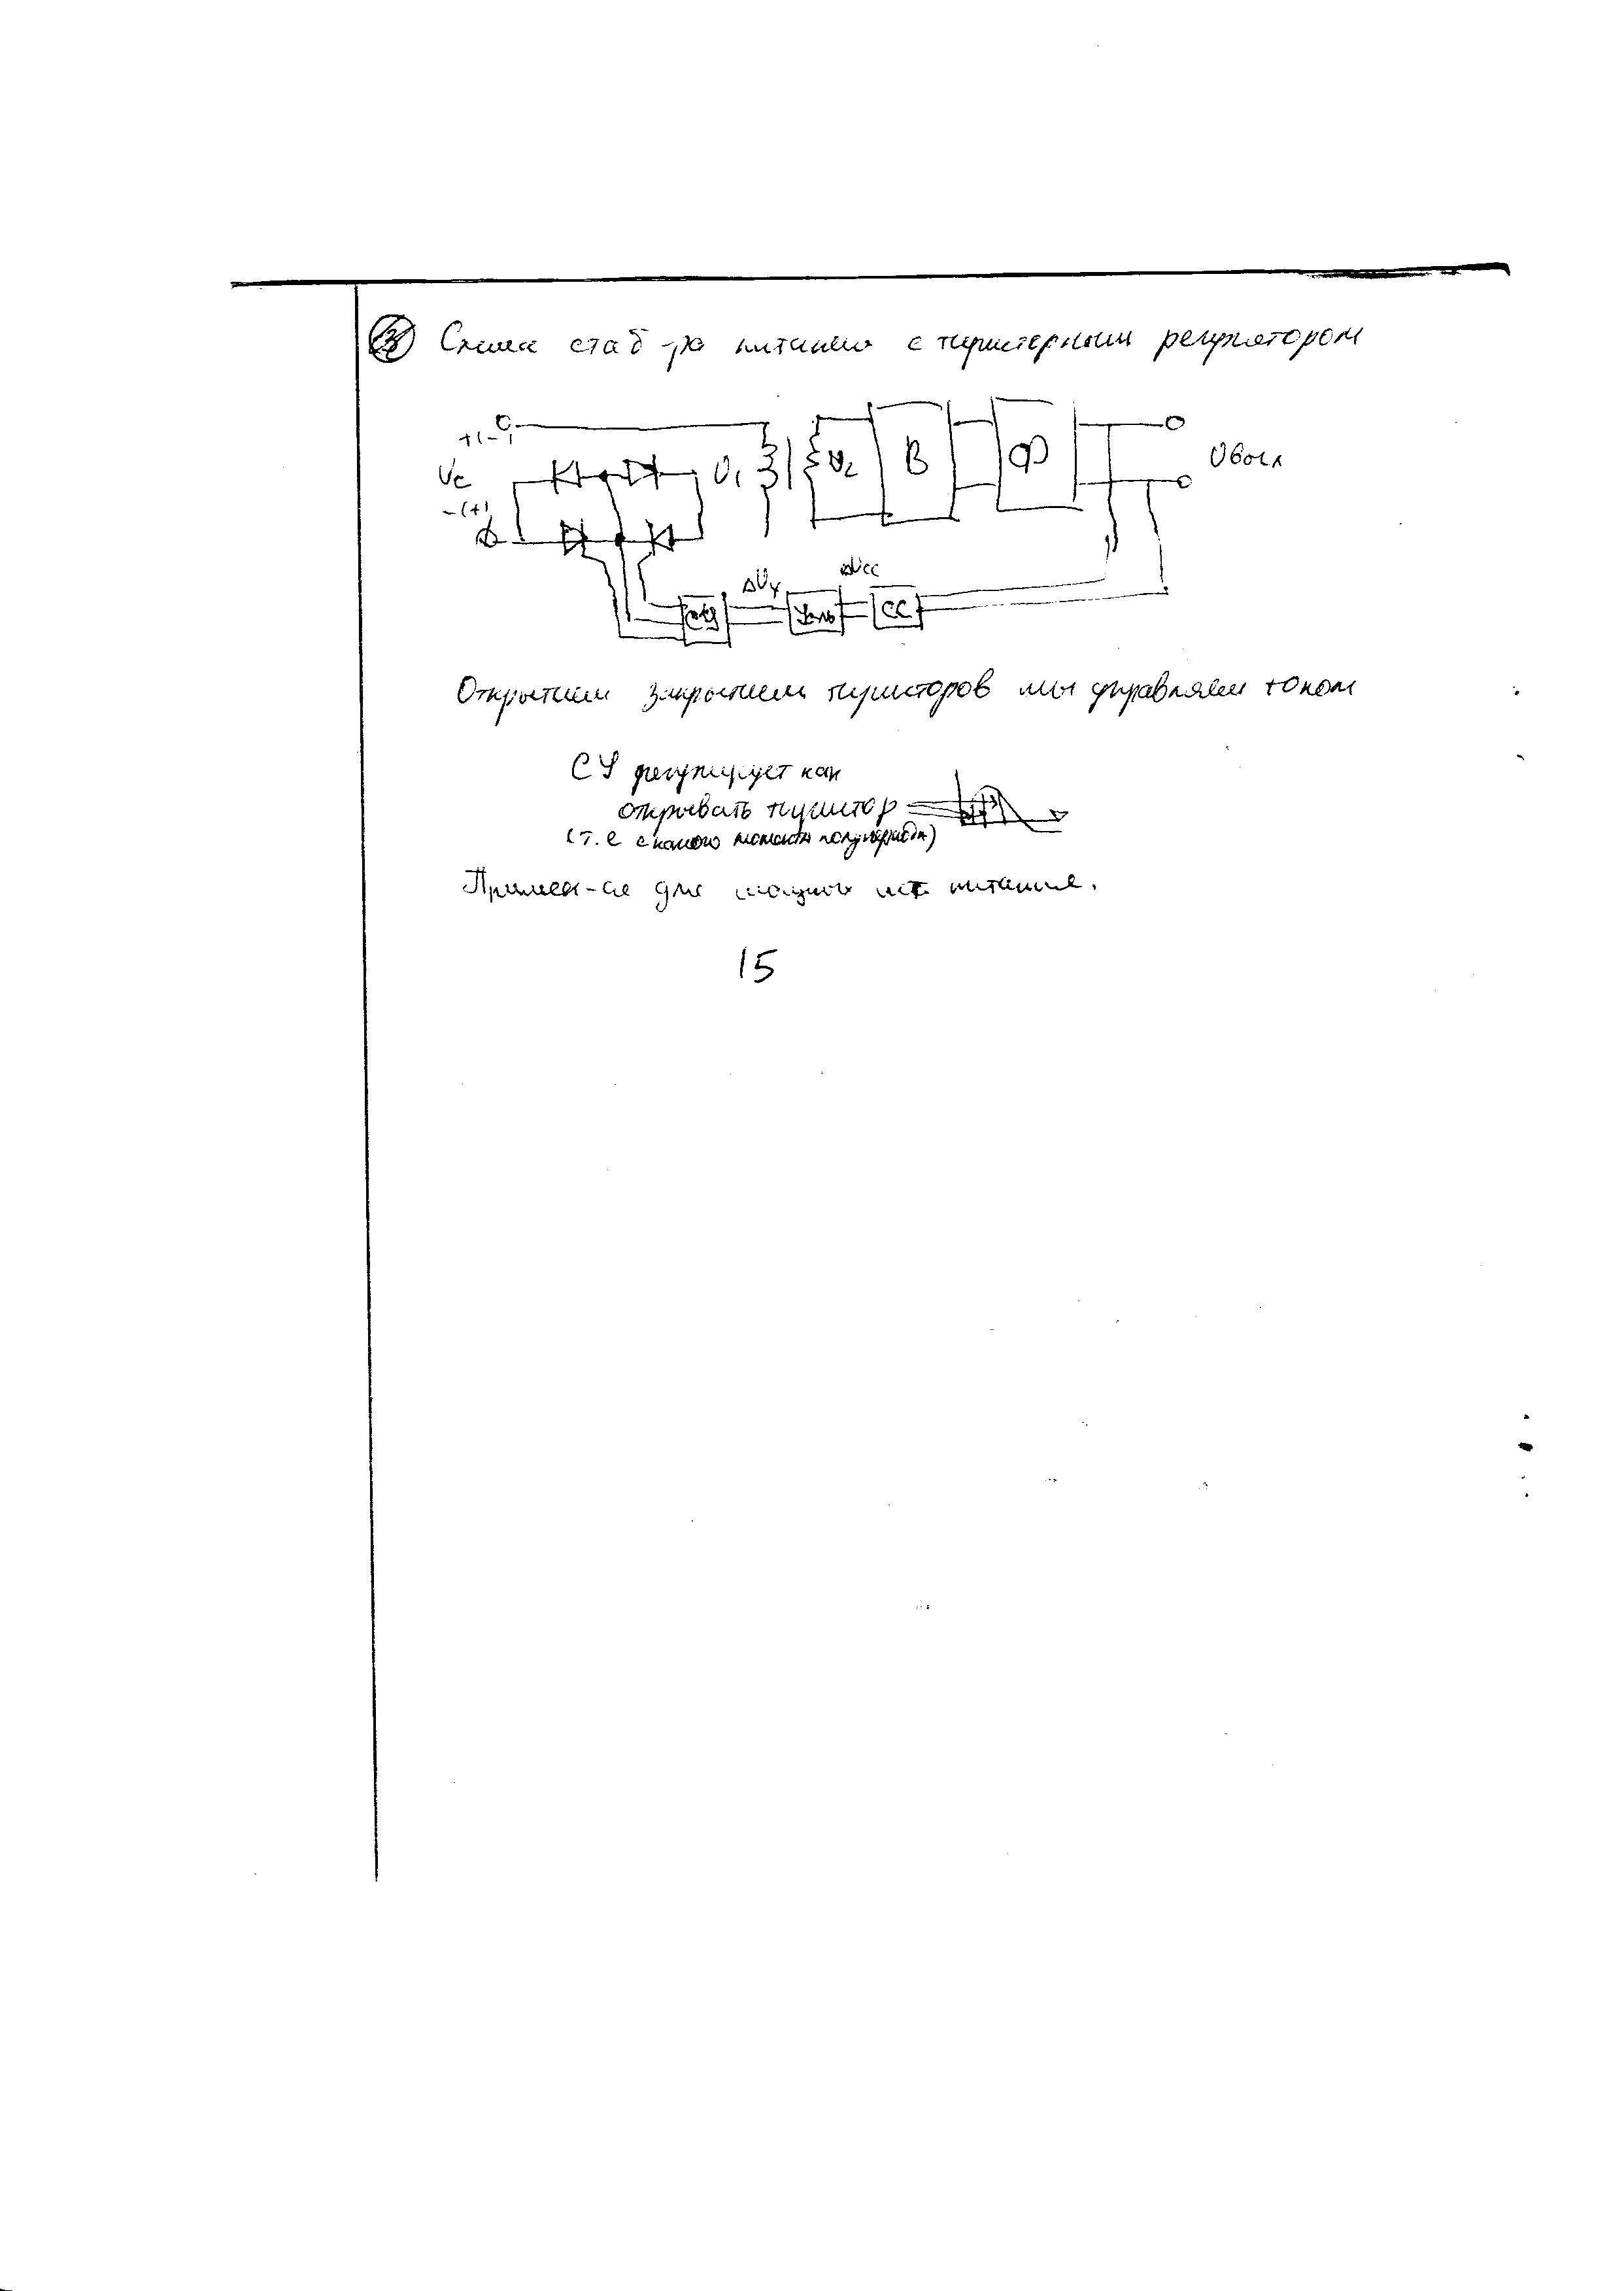 Схема стаб-ра питания с тиристорным регулятором
+(-)
Uc
-(+)
U1
U2
В
Ф
Uвых
ΔUу
ΔUcc
СУ
Усил
СС
Открытием закрытием тиристоров мы управляем током
СУ регулирует как
открывать тиристор
(т.е с какого момента полупериода)
Примен-ся для мощных ист питания.
15